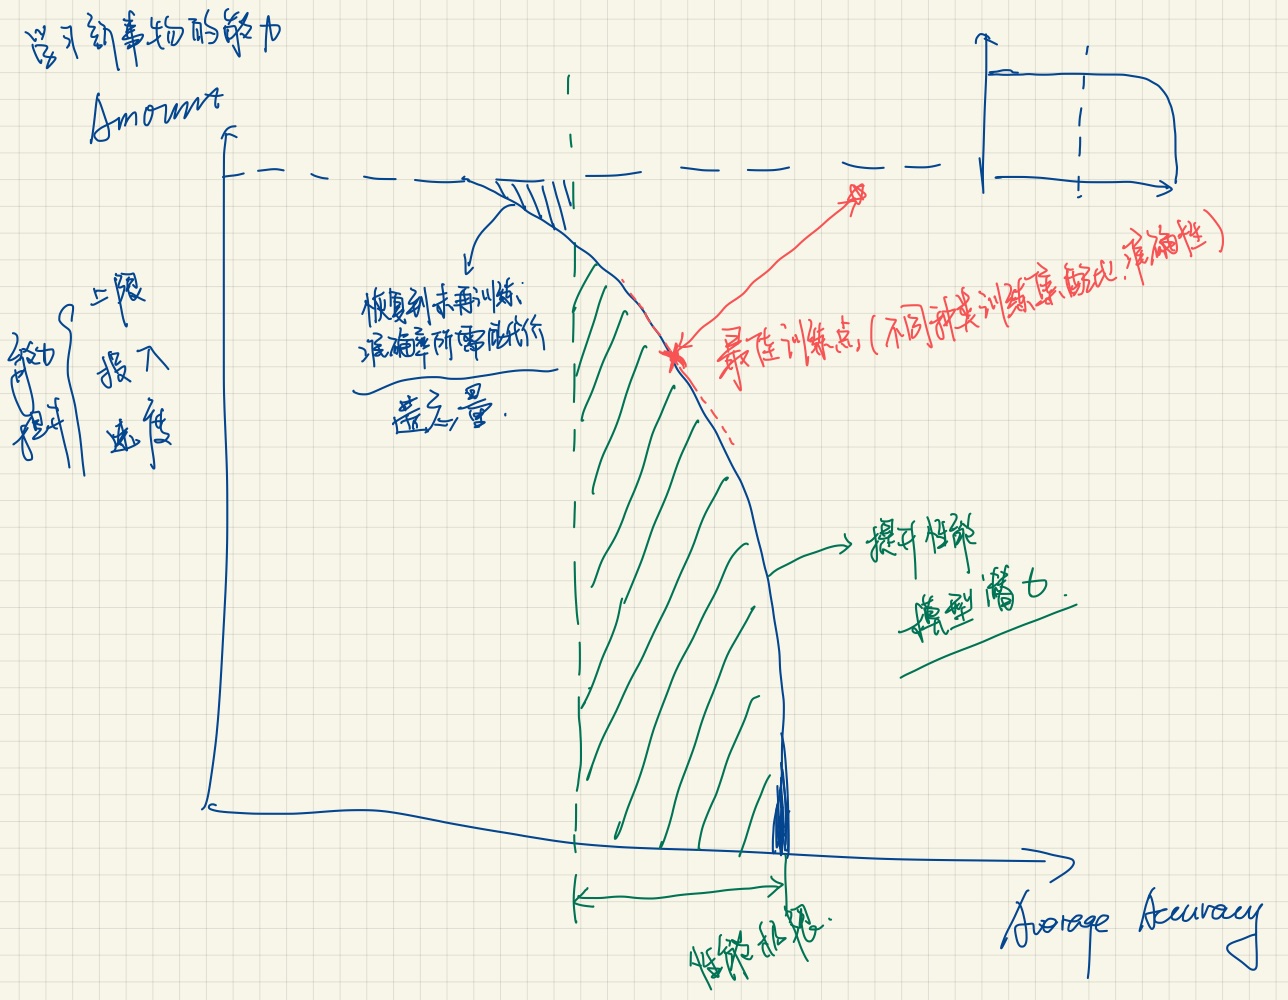 学习新事物的能力
Amount
上限
投入
速度
能力
提升
恢复到未再训练
准确率所需代价
遗忘量.
最佳训练点,(不同种类训练集配比.准确性)
提升性能
模型潜力.
性能极限.
Average Accuracy